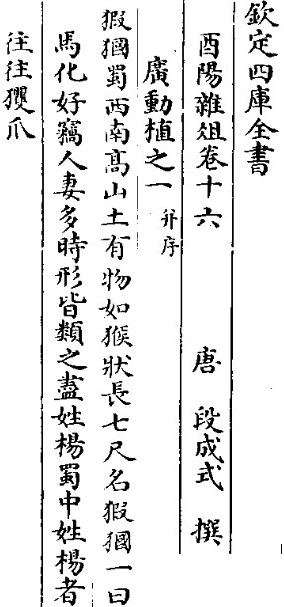 欽定四庫全書
酉陽雜俎卷十六
唐 段成式 撰
廣動植之一 并序
猳猸蜀西南髙山土有物如猴狀長七尺名猳猸一曰
馬化好竊人妻多時形皆類之盡姓楊蜀中姓楊者
往往玃爪